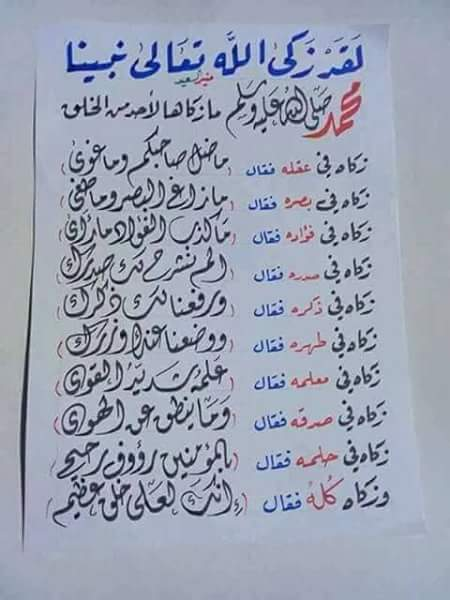 لقد زكى الله تعالى نبينا
منير السعيد
محمد صلى الله عليه وسلم ما زكاها لأحد من الخلق
زكاه في عقله فقال (ما ضل صاحبكم وما غوى)
زكاه في بصره فقال (ما زاغ البصر وما طغى)
زكاه في فؤاده فقال (ما كذب الفؤاد ما رأى)
زكاه في صدره فقال (ألم نشرح لك صدرك)
زكاه في ذكره فقال (ورفعنا لك ذكرك)
زكاه في طهره فقال (ووضعنا عنك وزرك)
زكاه في معلمه فقال (علمه شديد القوى)
زكاه في صدقه فقال (وما ينطق عن الهوى)
زكاه في حلمه فقال (بالمؤمنين رؤوف رحيم)
وزكاه كله فقال (إنك لعلى خلق عظيم)